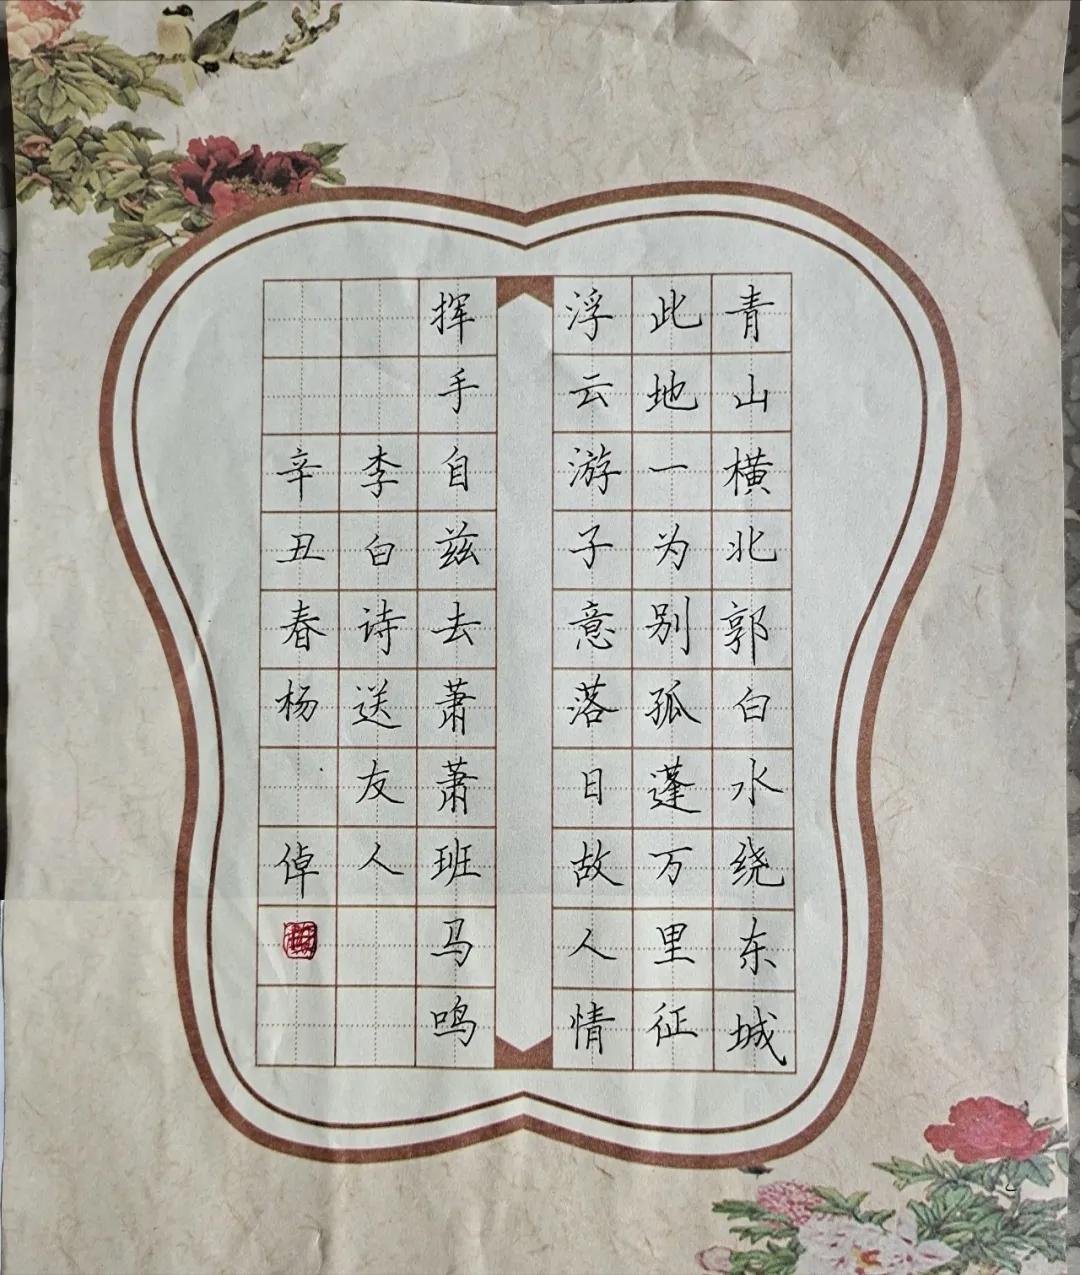 青山横北郭白水绕东城
此地一为别孤蓬万里征
浮云游子意落日故人情
挥手自兹去萧萧班马鸣
李白诗送友人
辛丑春杨倬